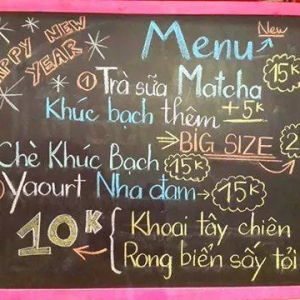 HAPPY NEW YEAR
Menu New
① Trà sữa Matcha 15K
Khúc bạch thêm +5K
BIG SIZE
Chè Khúc Bạch 15K
Yaourt Nha đam 15K
10K Khoai tây chiên
Rong biển sấy tỏi